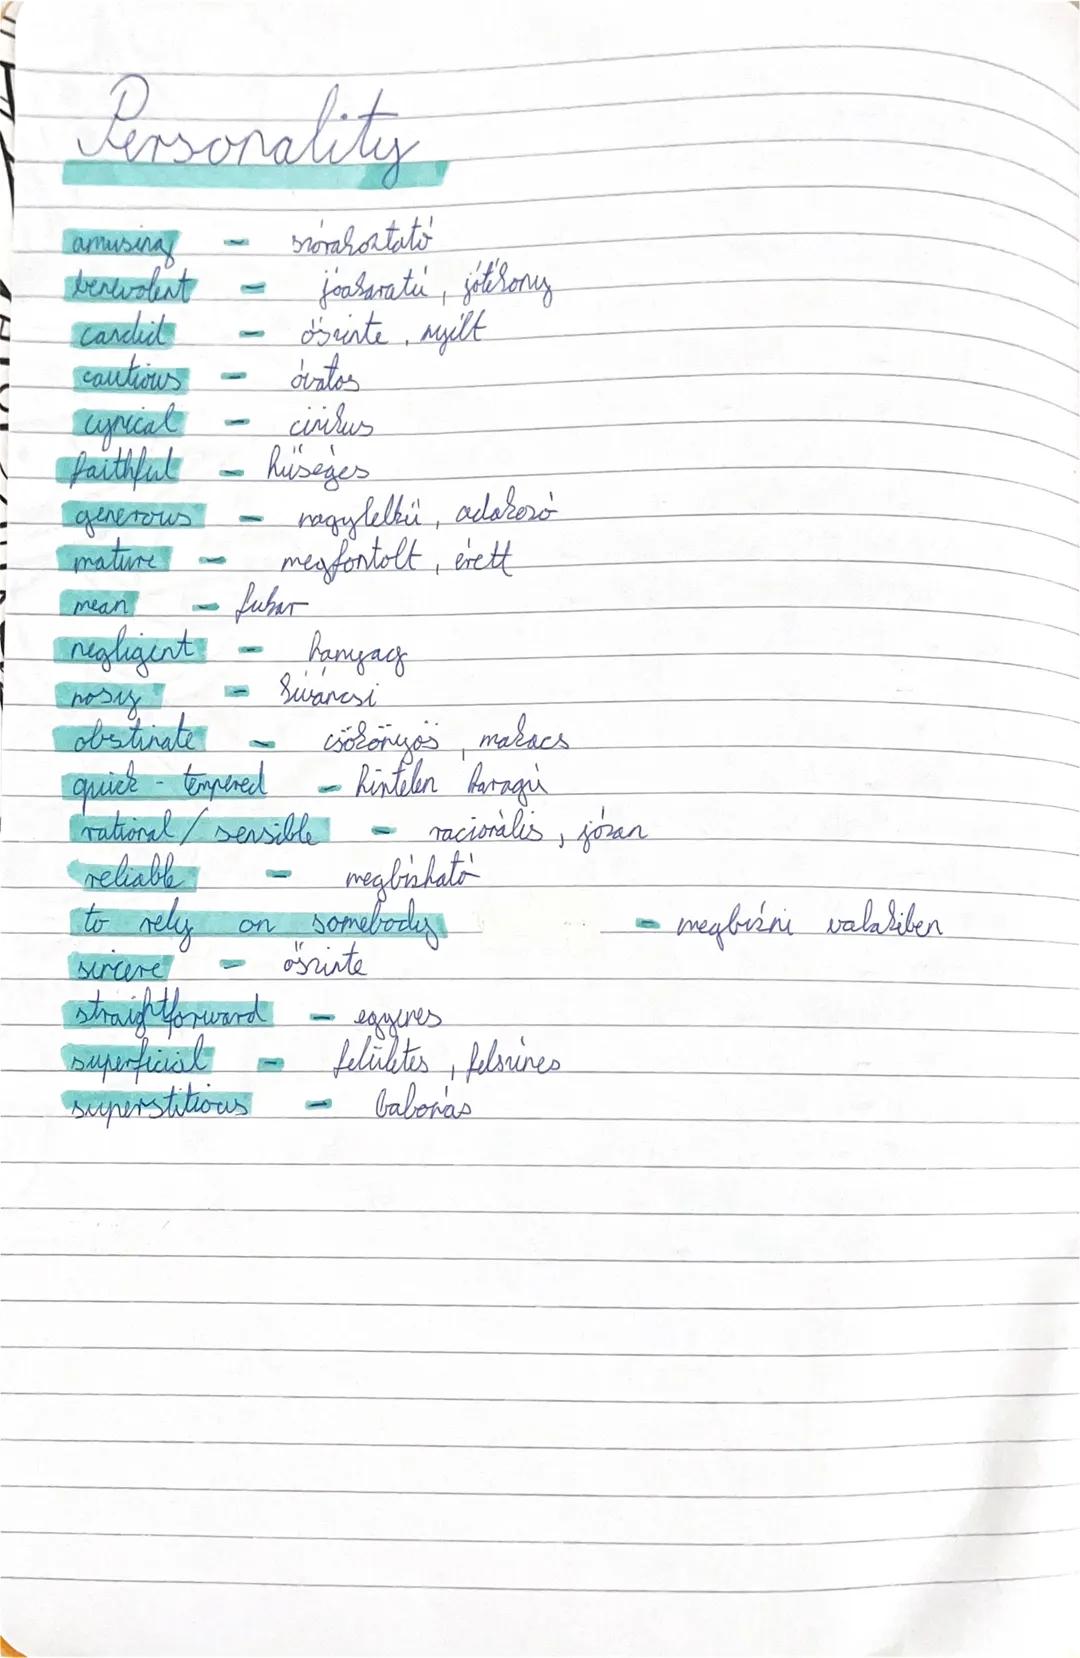 Personality
amusing - szórakoztató
benevolent - jóakaratú, jótékony
candid - őszinte, nyílt
cautious - óvatos
cynical - cinikus
faithful - hűséges
generous - nagylelkű, adakozó
mature - megfontolt, érett
mean - fukar
negligent - hanyag
nosy - kíváncsi
obstinate - csökönyös, makacs
quick-tempered - hirtelen haragú
rational / sensible - racionális, józan
reliable - megbízható
to rely on somebody - megbízni valakiben
sincere - őszinte
straightforward - egyenes
superficial - felületes, felszínes
superstitious - babonás